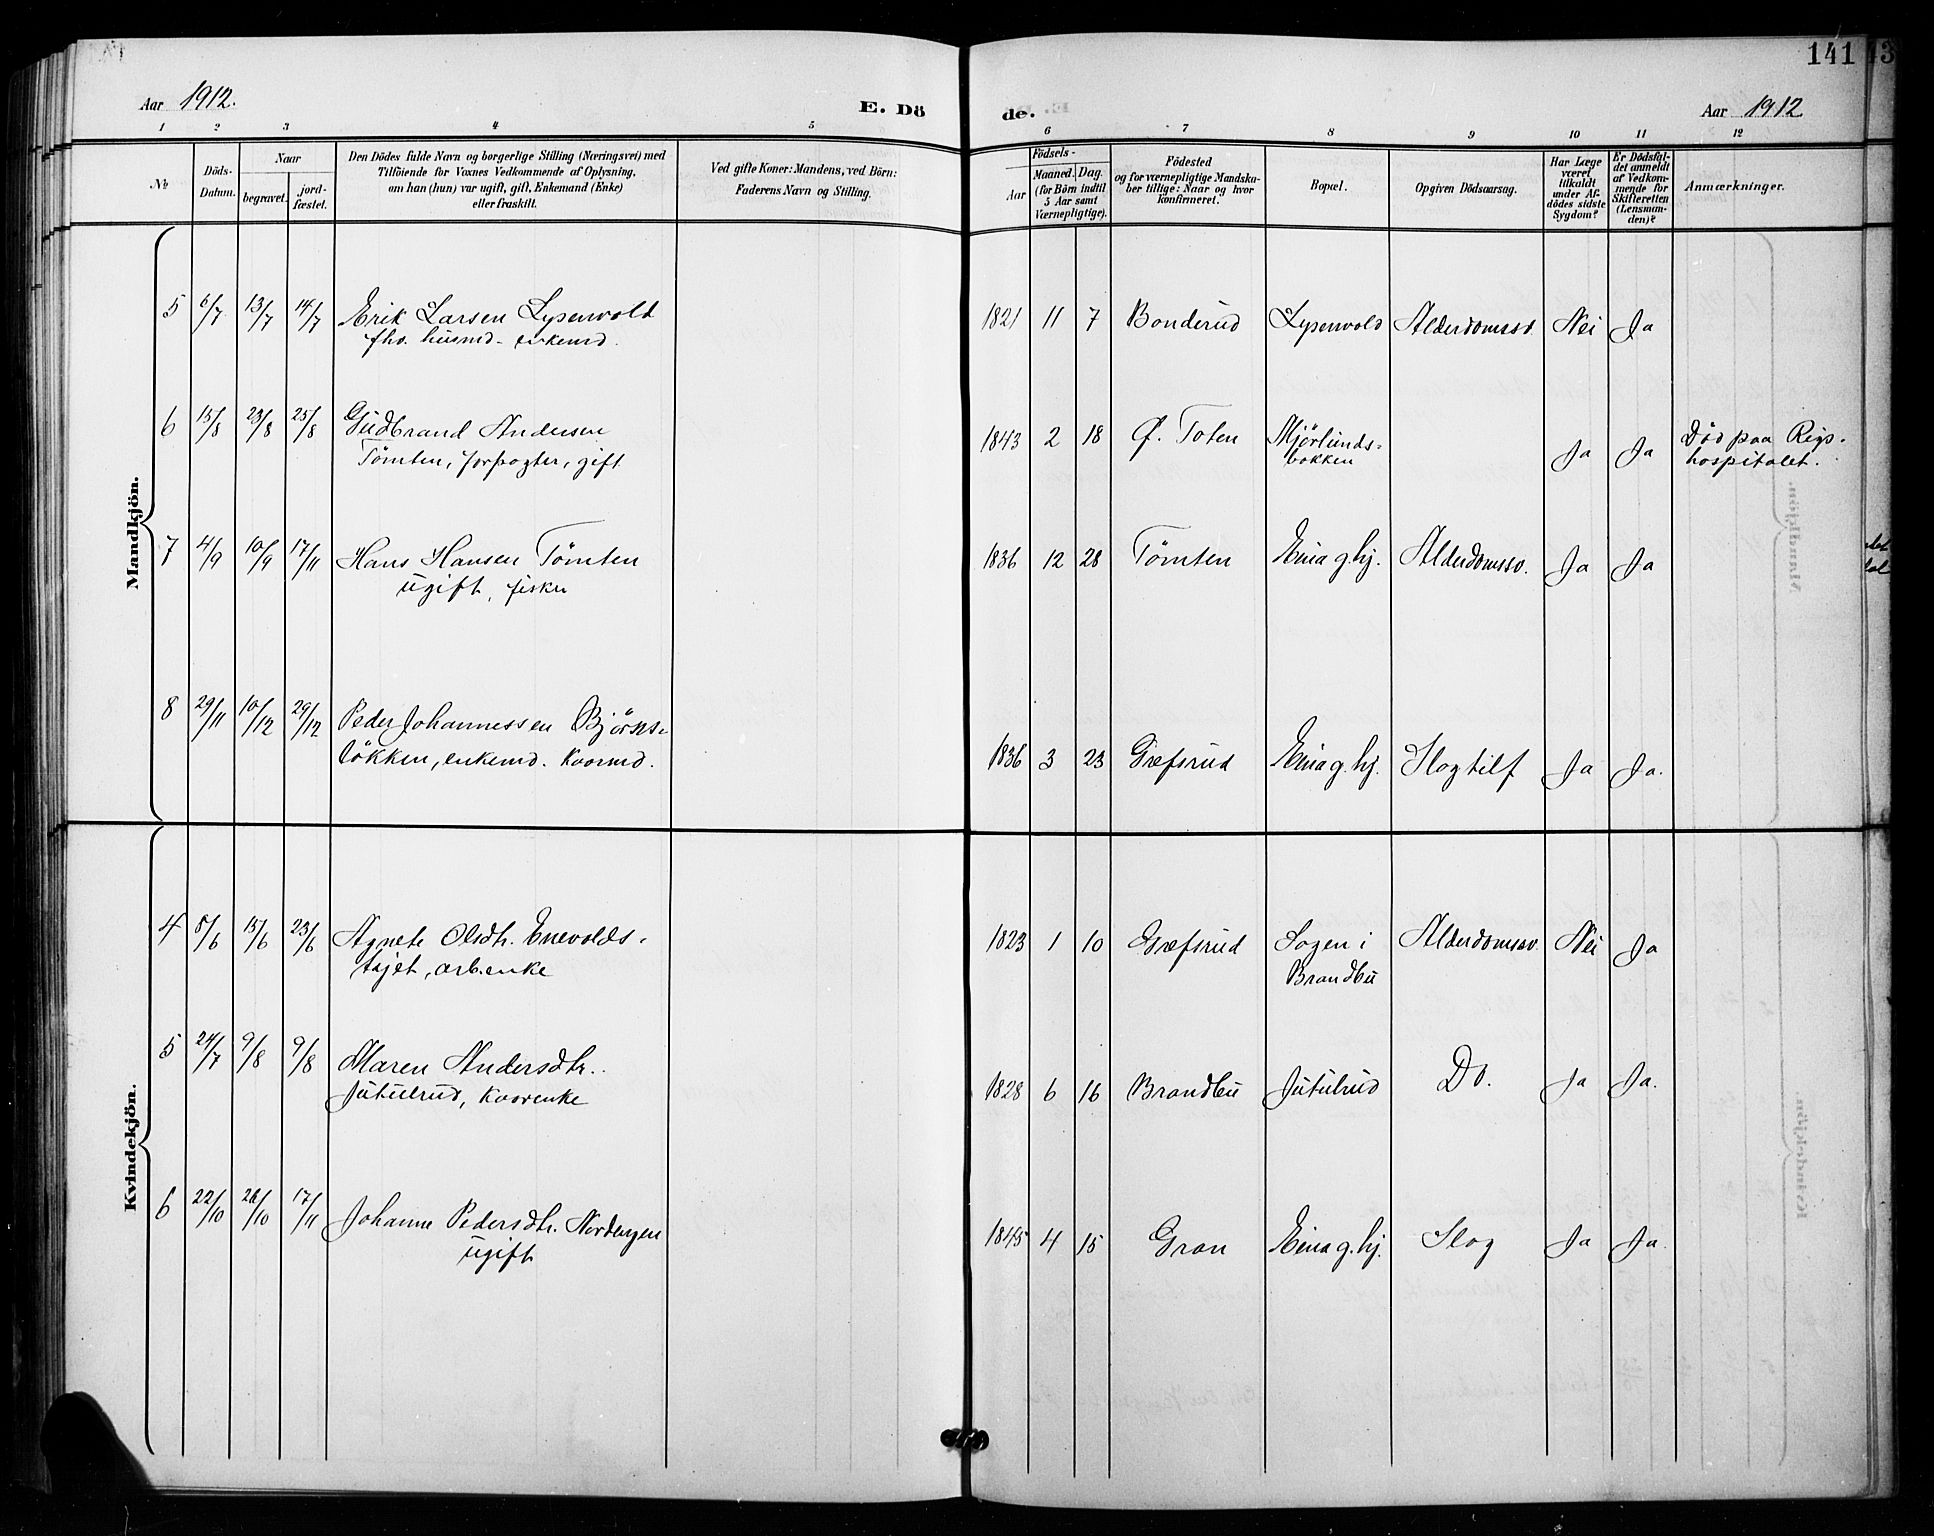 141
Aar 1912.
E. Dö
de.
Aar 1912
1 2 3 4 5
6 7 8 9 10 11 12
№
Döds-
Datum.
Naar
begravet.
jord-
fæstet.
Den Dödes fulde Navn og borgerlige Stilling (Næringsvei) med
Tilföiende for Voxnes Vedkommende af Oplysning,
om han (hun) var ugift, gift, Enkemand (Enke)
eller fraskilt.
Ved gifte Koner: Mandens, ved Börn:
Faderens Navn og Stilling.
Födsels-
Aar
Maaned. Dag.
(for Börn indtil
5 Aar samt
Værnepligtige).
Födested
og for værnepligtige Mandska-
ber tillige: Naar og hvor
konfirmeret.
Bopæl.
Opgiven Dödsaarsag.
Har Læge
været
tilkaldt
under Af-
dödes sidste
Sygdom?
Er Dödsfal-
det anmeldt
af Vedkom-
mende for
Skifteretten
(Lensman-
den)?
Anmærkninger.
Mandkjön.
5 6/7 13/7 14/7 Erik Larsen Lysenvold 1821 11 7 Bonderud Lysenvold Alderdomssv. Nei Ja
fhv. husmd - enkemd.
6 13/8 23/8 25/8 Gudbrand Andersen 1843 2 18 Ø. Toten Mjörlunds- Ja Ja Död paa Rigs-
Tömten, forpagter, gift bakken hospitalet.
7 4/9 10/9 17/11 Hans Hansen Tömten 1836 12 28 Tömten Eina g.hj. Alderdomssv. Ja Ja
ugift, fisker
8 29/11 10/12 29/12 Peder Johannessen Björns-
lökken, enkemd. kaarmd. 1836 3 23 Græfsrud Eina g.hj. Slagtilf Ja Ja.
Kvindekjön.
4 8/6 15/6 23/6 Agnete Olsdtr. Enevolds- 1823 1 10 Græfsrud Sogen i Alderdomssv. Nei Ja
tajet, arb.enke Brandbu
5 24/7 9/8 9/8 Maren Andersdtr.
Jutulrud, kaarenke 1828 6 16 Brandbu Jutulrud Do. Ja Ja.
6 22/10 26/10 17/11 Johanne Pedersdtr. Nordengen 1845 4 15 Gran Eina g.hj. Slag Ja Ja.
ugift